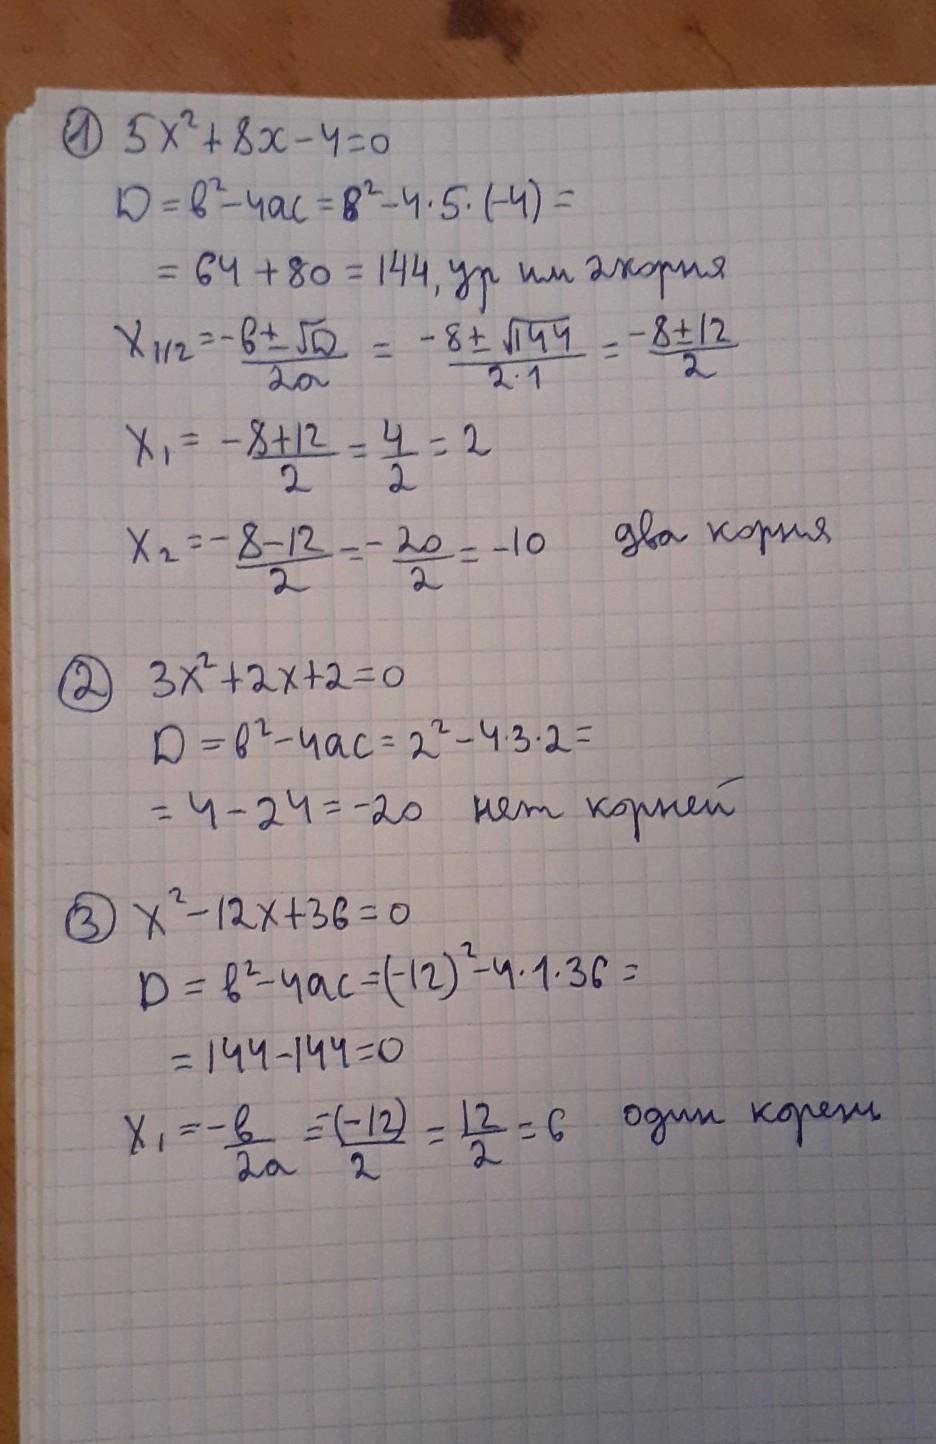 ① 5x²+8x-4=0
D = в²-4ac = 8²-4·5·(-4) =
= 64+80=144, ур им 2 корня
x₁/₂ = -в±√D/2a = -8±√144/2·1 = -8±12/2
x₁ = -8+12/2 = 4/2 = 2
x₂ = -8-12/2 = -20/2 = -10 два корня
② 3x²+2x+2=0
D = в²-4ac = 2²-4·3·2=
= 4-24=-20 нет корней
③ x²-12x+36=0
D = в²-4ac = (-12)²-4·1·36 =
= 144-144=0
x₁ = -в/2a = -(-12)/2 = 12/2 = 6 один корень